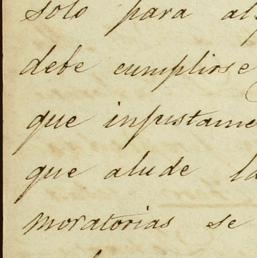 solo para al
debe cumplirse
que injustame
que alude la
moratorias se